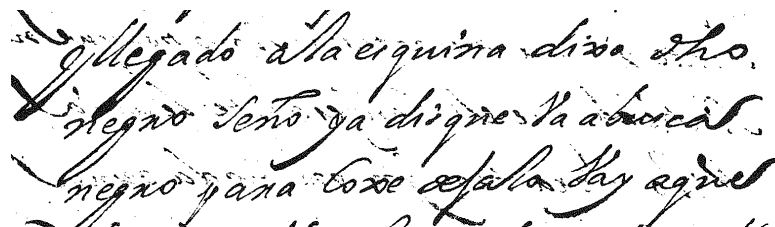 y llegado a la esquina dixo dho
negro Señor ya disque va a buscar
negro para Coxe dexala Vay aquel